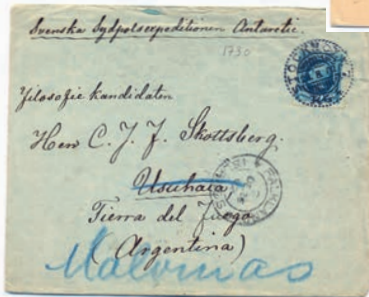 Svenska Sydpolsexpeditionen Antarctic.
1730
Filosofie kandidaten
Herr C. J. F. Skottsberg.
Usuhaia
Tierra del fuego
(Argentina)
Malvinas